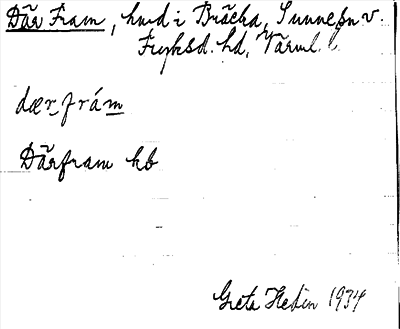 Där Fram, hmd i Bräcka, Sunne sn v.
Fryksd. hd, Värml. l.
dærfrám
Därfram hb
Greta Hedin 1934